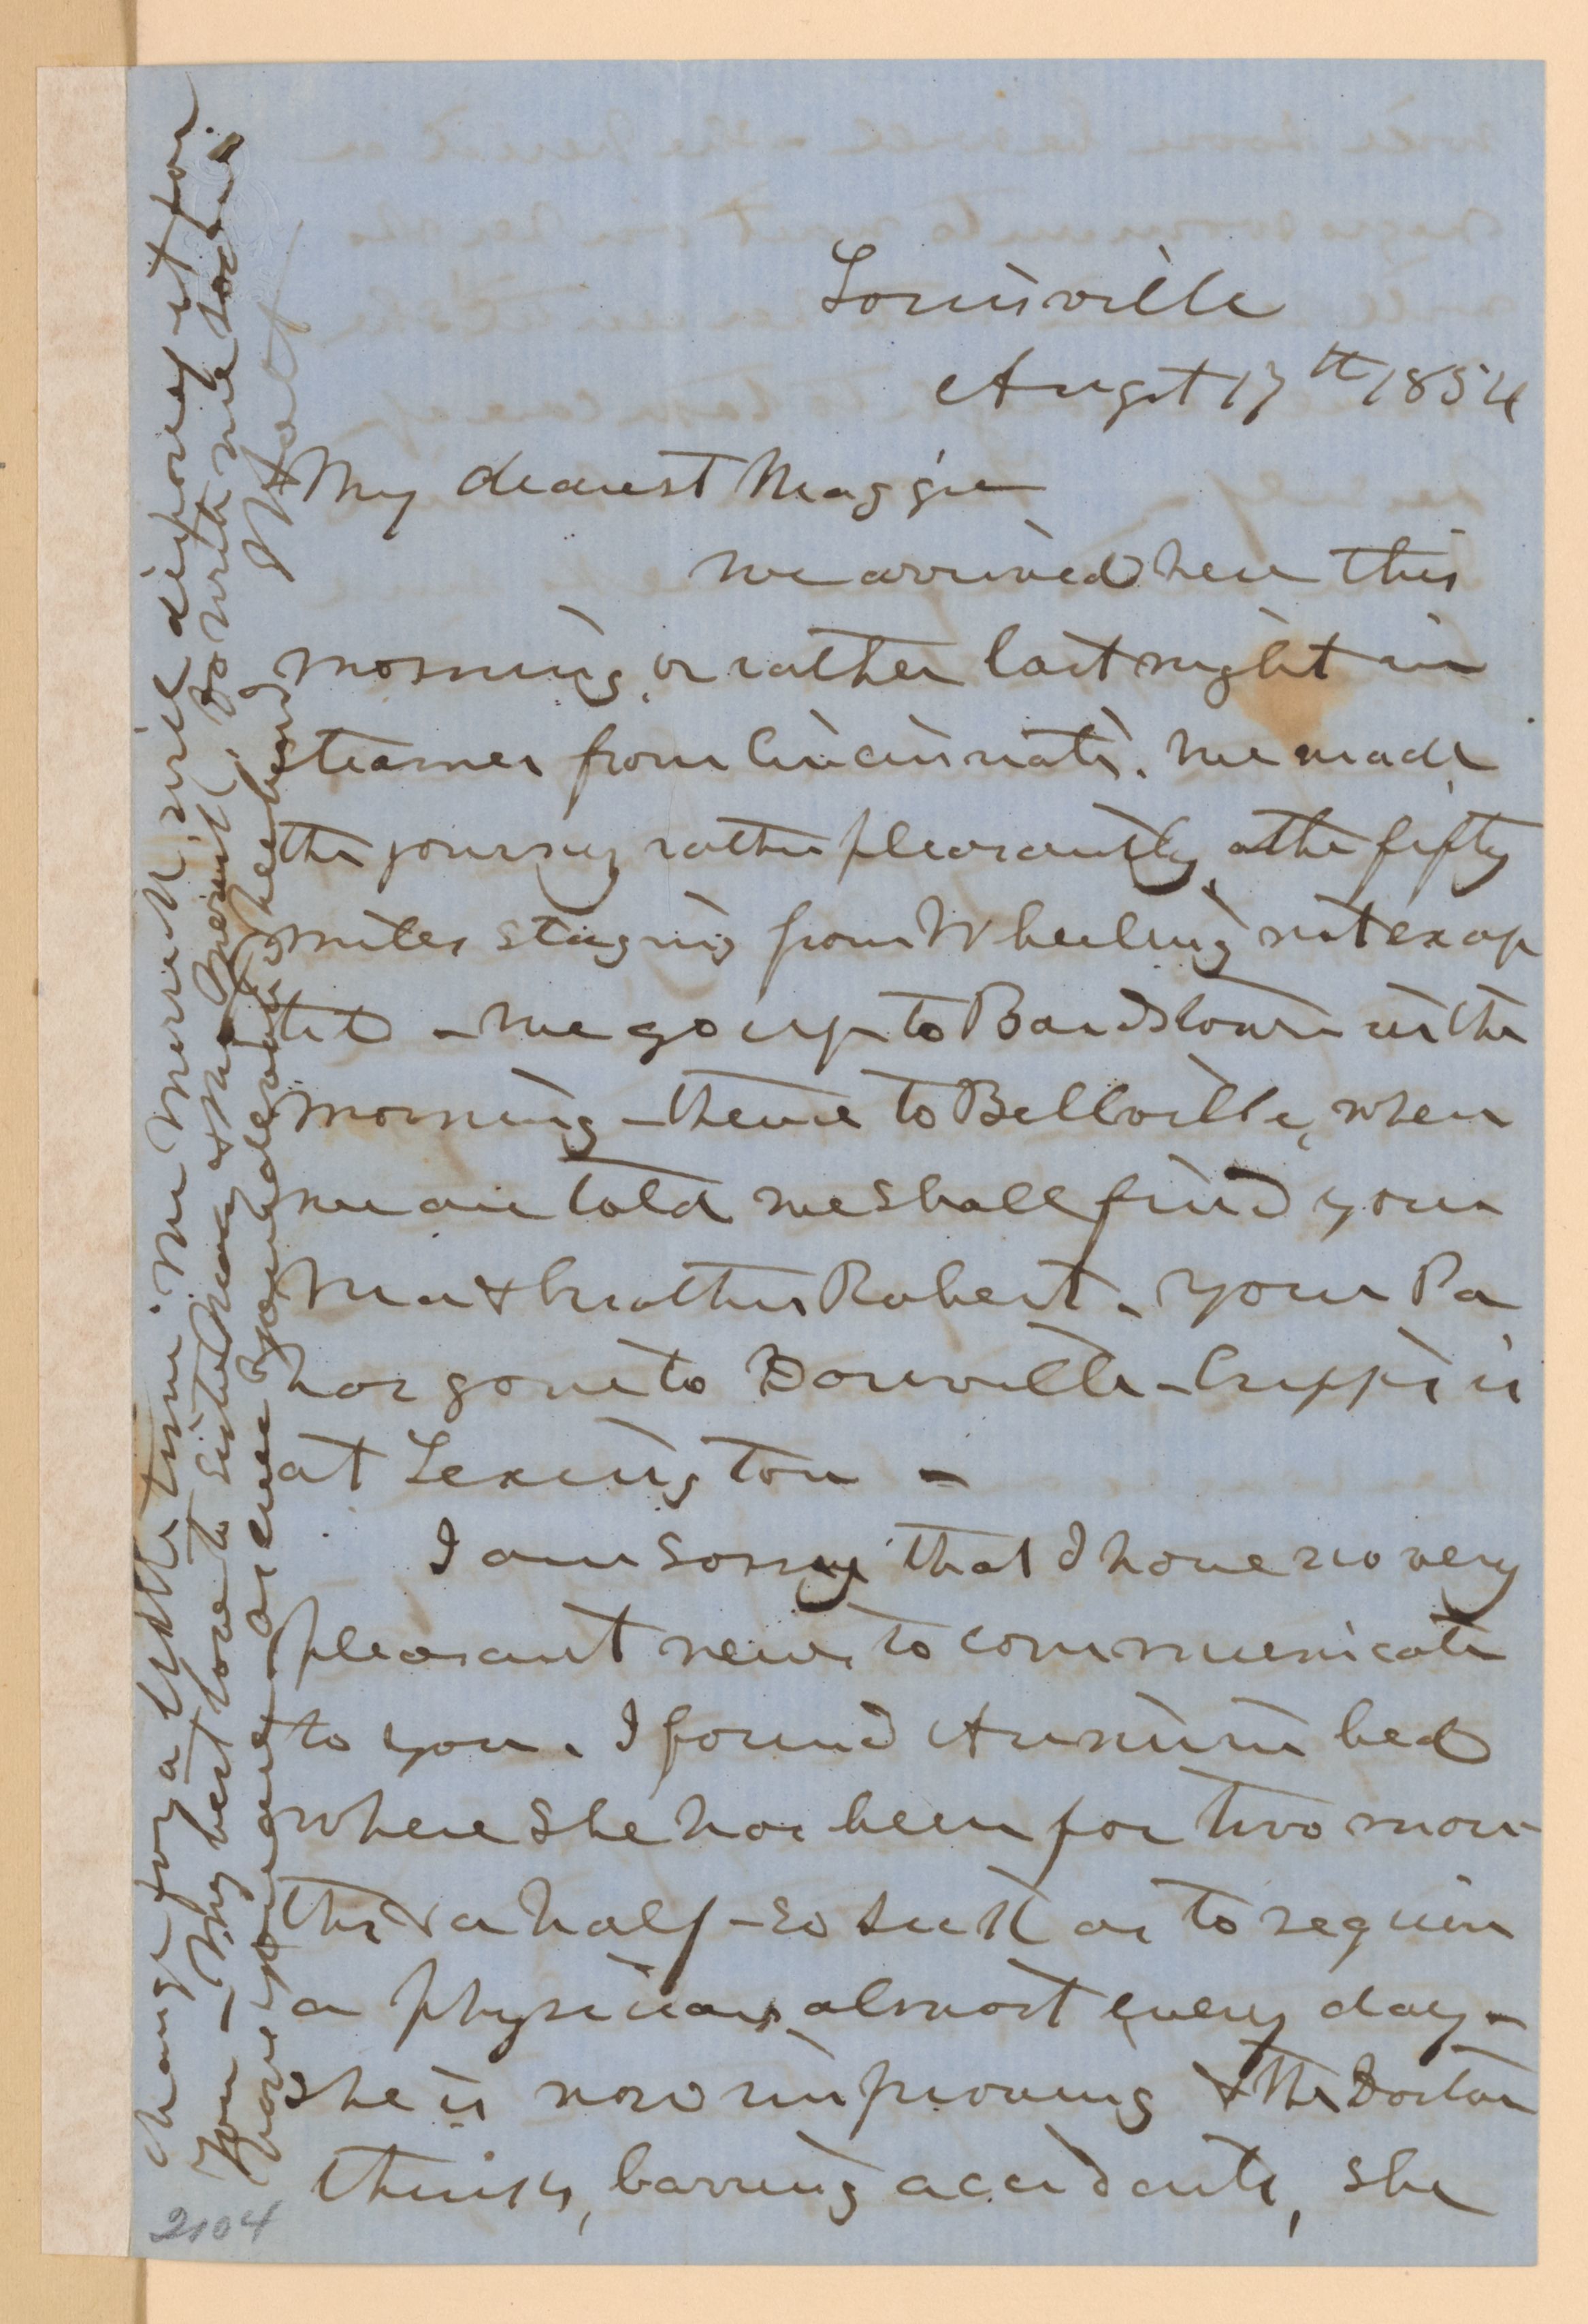 Louisville
Augst 17th 1854
My dearest Maggie
We arrived here this
morning, or rather last night in
steamer from Cincinnati. We made
the journey rather pleasantly, the fifty
miles staging from Wheeling not excep
ted - We go up to Bardstown in the
morning - thence to Bellville, where
we are told we shall find your
Ma & brother Robert. Your Pa
has gone to Danville - Crippi is
at Lexington -
I am sorry that I have no very
pleasant news to communicate
to you. I found Ann in bed
where she has been for two mon
ths & a half - so sick as to require
a physician almost every day -
she is now improving & the Doctor
thinks, barring accidents, she
change for a little time. Mr Merrill will dispose of it for
you - My best love to sister Mary & Mr Merrill, so with me
have your dear Your devoted husband
2104